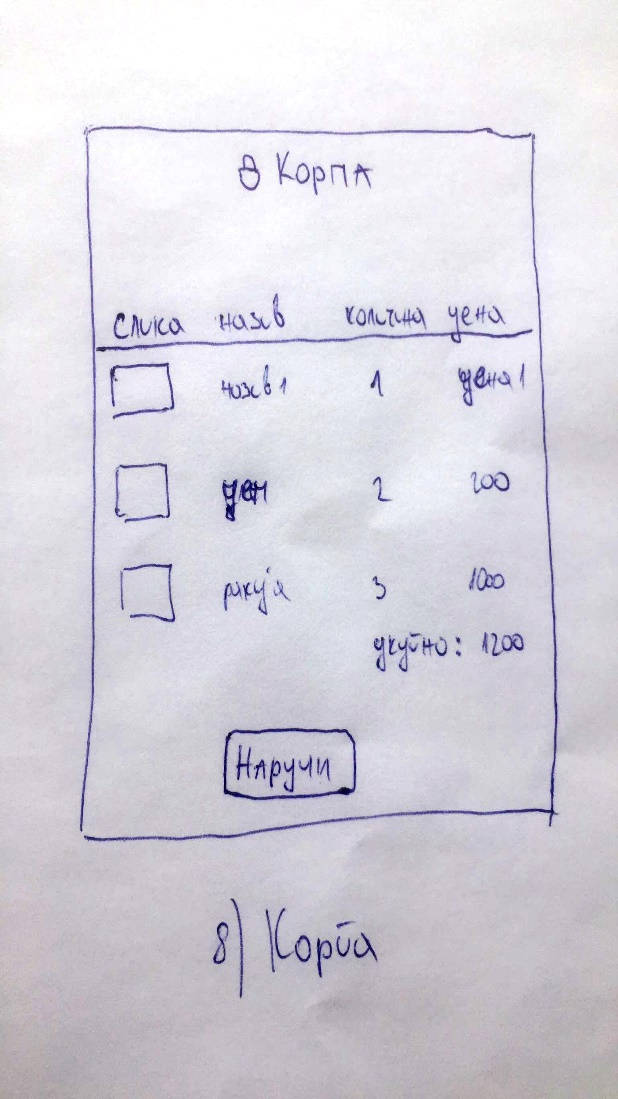 Корпа
слика назив количина цена
назив 1 1 цена 1
2 200
ракија 3 1000
укупно: 1200
Наручи
8) Корпа